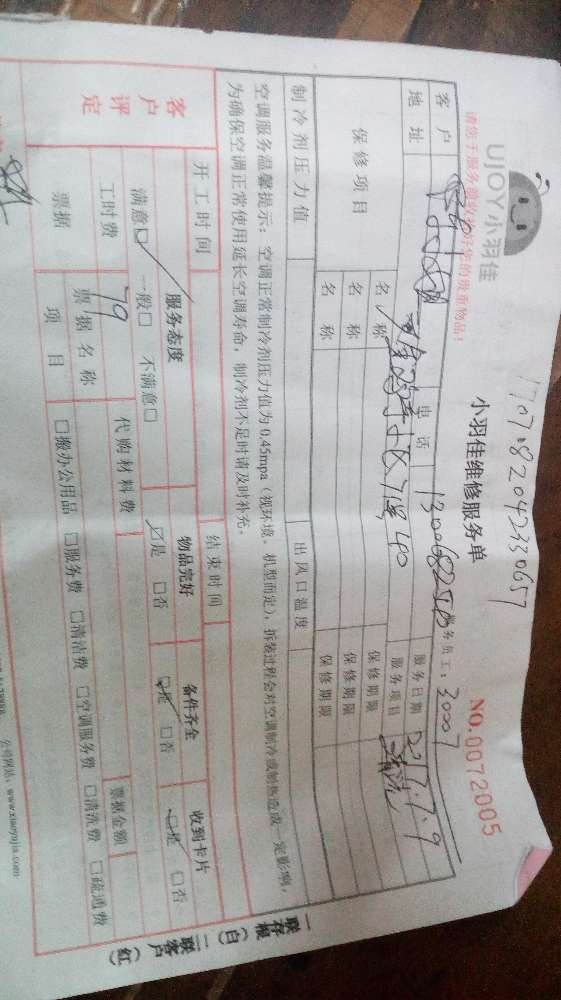 UJOY小羽佳
1707182042330657
小羽佳维修服务单
NO.0072005
请您于服务前收拾好您的贵重物品！
服务员工：30007
客户
电话
服务日期 2017.7.9
地址
服务项目 清洗
保修项目
名称
保修期限
名称
保修期限
名称
保修期限
制冷剂压力值
出风口温度
空调服务温馨提示：空调正常制冷剂压力值为0.45mpa（视环境、机型而定），拆装过程会对空调制冷或制热造成一定影响，
为确保空调正常使用延长空调寿命，制冷剂不足时请及时补充。
客户评定
开工时间
结束时间
服务态度
物品完好
备件齐全
收到卡片
满意☑ 一般□ 不满意□
☑是 □否
☑是 □否
☑是 □否
工时费 79
代购材料费
票据
票据名称
票据金额
项目
□搬办公用品 □服务费 □清洁费 □空调服务费 □清洗费 □疏通费
一联存根（白）二联客户（红）
公司网站：www.xiaoyujia.com